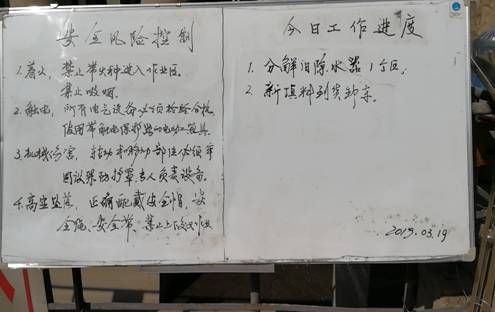 安全风险控制
1. 着火，禁止带火种进入作业区。
禁止吸烟。
2. 触电，所有电气设备必须检验合格，
使用带触电保护器的电动工具
3. 机械伤害，转动和移动部位必须牢
固设保护罩，专人负责设备。
4. 高空坠落，正确配戴安全帽、安
全绳、安全带，禁止上下交叉作业
今日工作进度
1. 分解旧除水器1个区。
2. 新填料到货卸车。
2019.03.19